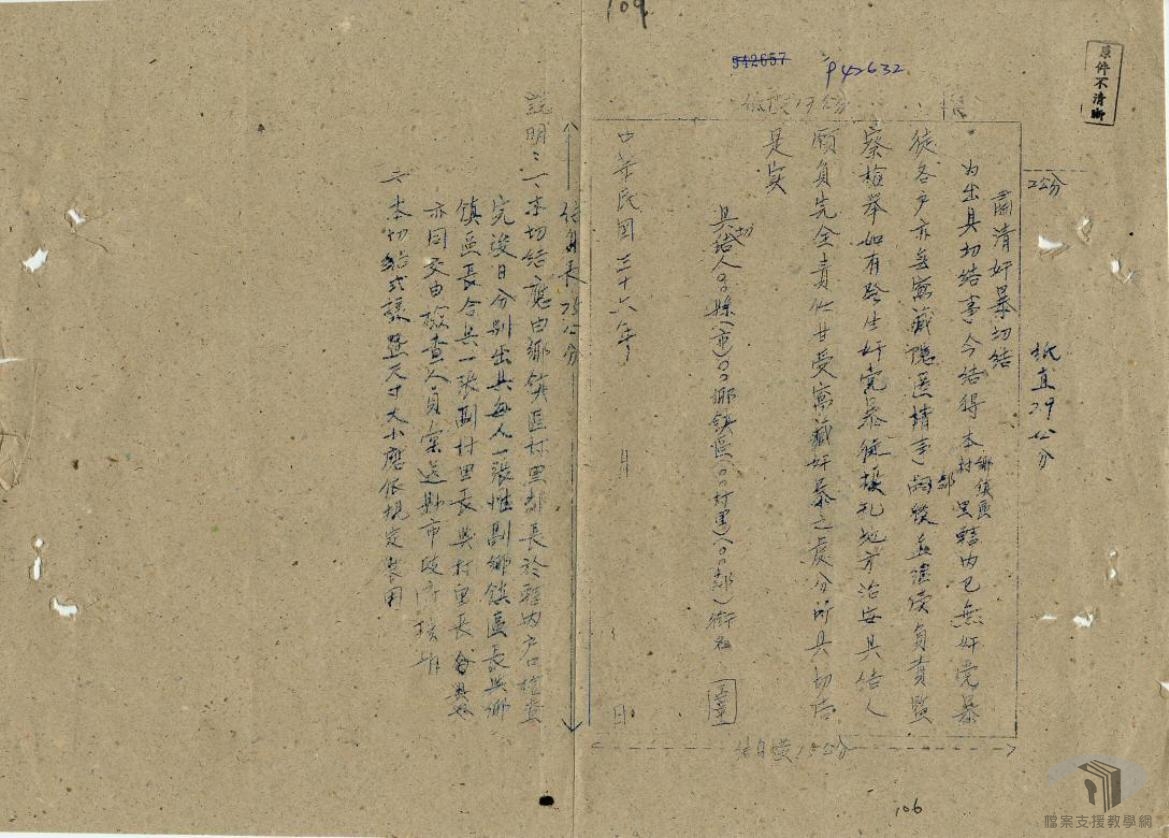 109
942657
P42632
原件不清晰
橫
紙橫19公分
2公分
紙直29公分
肅清奸暴切結
為出具切結事今結得本鄉鎮區村里鄰轄內已無奸党暴
徒各戶亦無窩藏隱匿情事嗣後並繼續負責監
察檢舉如有發生奸党暴徒擾乱地方治安具結人
願負完全責任甘受窩藏奸暴之處分所具切結
是实
具切結人○○縣(市)○○鄉鎮區(○○村里)(○○鄰)銜名
中華民国三十六年 月 日
結身長25公分
結身橫15公分
說明：一、本切結應由鄉鎮區村里鄰長於轄內戶口檢查
完竣日分別出具每人一張惟副鄉鎮區長與鄉
鎮區長合具一張副村里長與村里長合具
亦同交由檢查人員彙送縣市政府核備
二、本切結式樣暨尺寸大小應依規定製用
106
檔案支援教學網